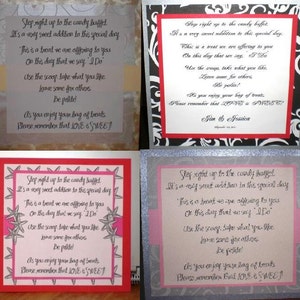 Step right up to the candy buffet.
It's a very sweet addition to this special day.
This is a treat we are offering to you
On this day that we say, "I Do"
Use the scoop, take what you like.
Leave some for others.
Be polite!
As you enjoy your bag of treats,
Please remember that LOVE is SWEET!
Step right up to the candy buffet.
It's a very sweet addition to this special day.
This is a treat we are offering to you
On this day that we say, "I Do"
Use the scoop, take what you like.
Leave some for others.
Be polite!
As you enjoy your bag of treats,
Please remember that LOVE is SWEET!
Jim & Jessica
Step right up to the candy buffet.
It's a very sweet addition to this special day.
This is a treat we are offering to you
On this day that we say, "I Do"
Use the scoop, take what you like.
Leave some for others.
Be polite!
As you enjoy your bag of treats,
Please remember that LOVE is SWEET!
Step right up to the candy buffet.
It's a very sweet addition to this special day.
This is a treat we are offering to you
On this day that we say, "I Do"
Use the scoop, take what you like.
Leave some for others.
Be polite!
As you enjoy your bag of treats,
Please remember that LOVE is SWEET!